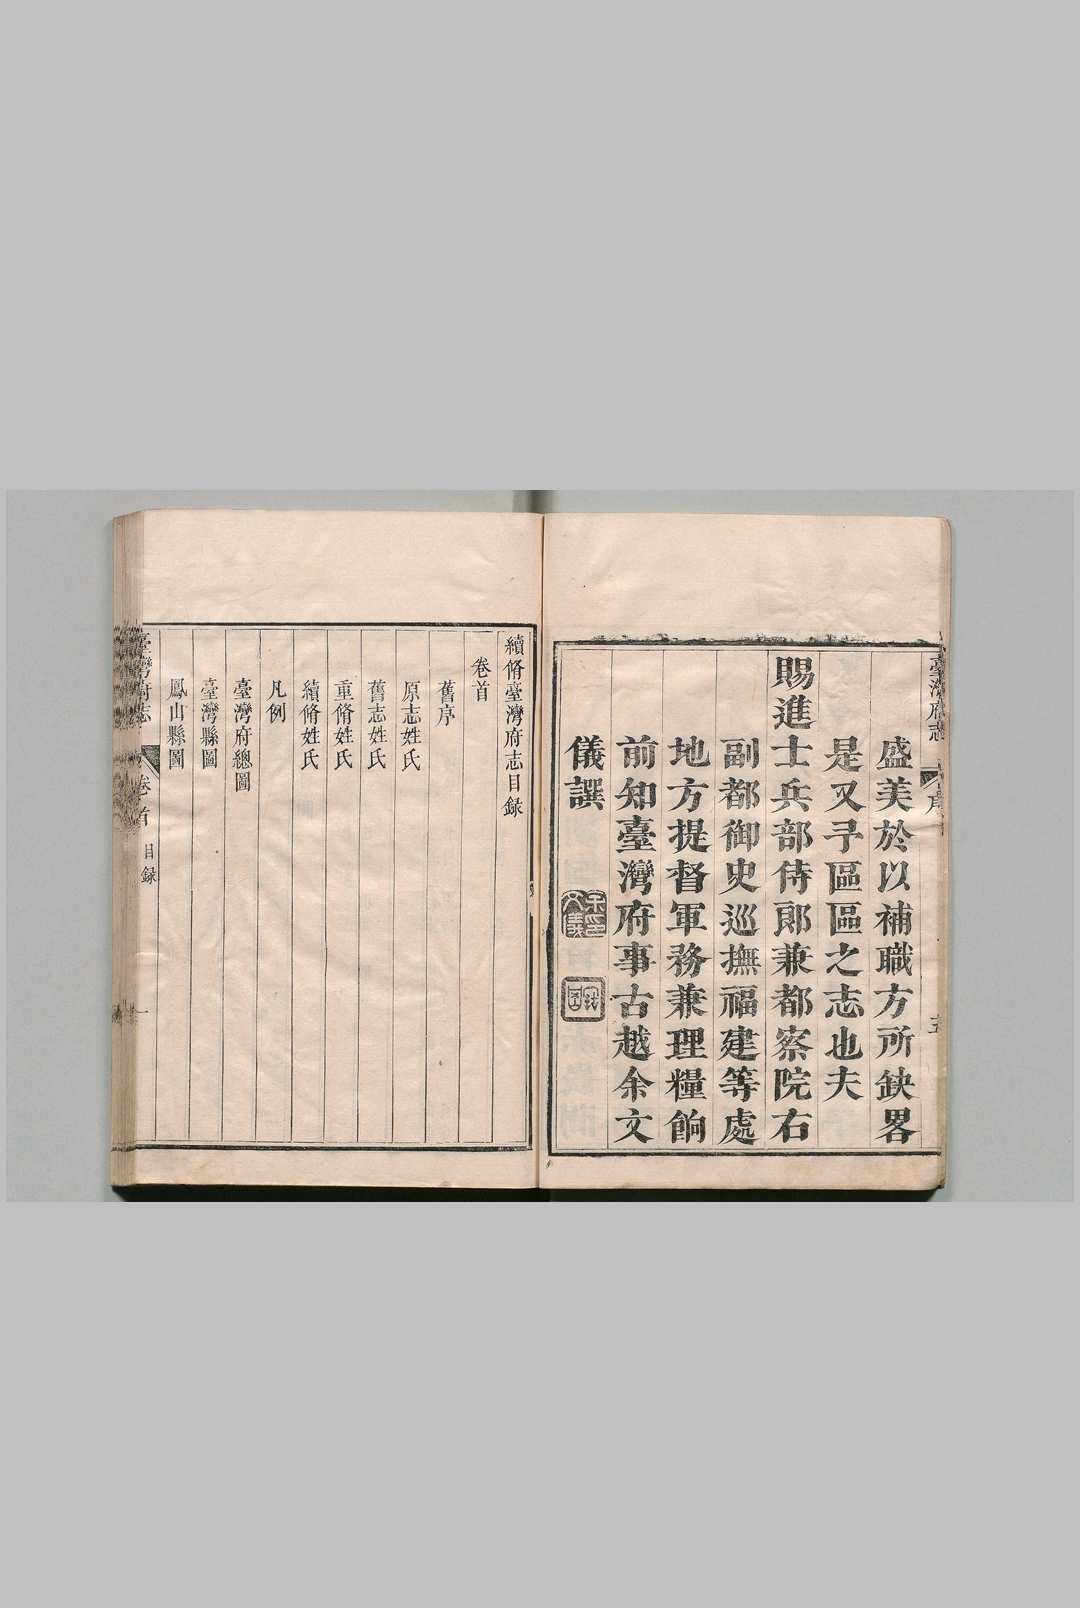 臺灣府志
序
五
盛美於以補職方所缺畧
是又予區區之志也夫
賜進士兵部侍郎兼都察院右
副都御史巡撫福建等處
地方提督軍務兼理糧餉
前知臺灣府事古越余文
儀譔
續脩臺灣府志目録
卷首
舊序
原志姓氏
舊志姓氏
重脩姓氏
續脩姓氏
凡例
臺灣府總圖
臺灣縣圖
鳳山縣圖
臺灣府志
卷首
目録
一